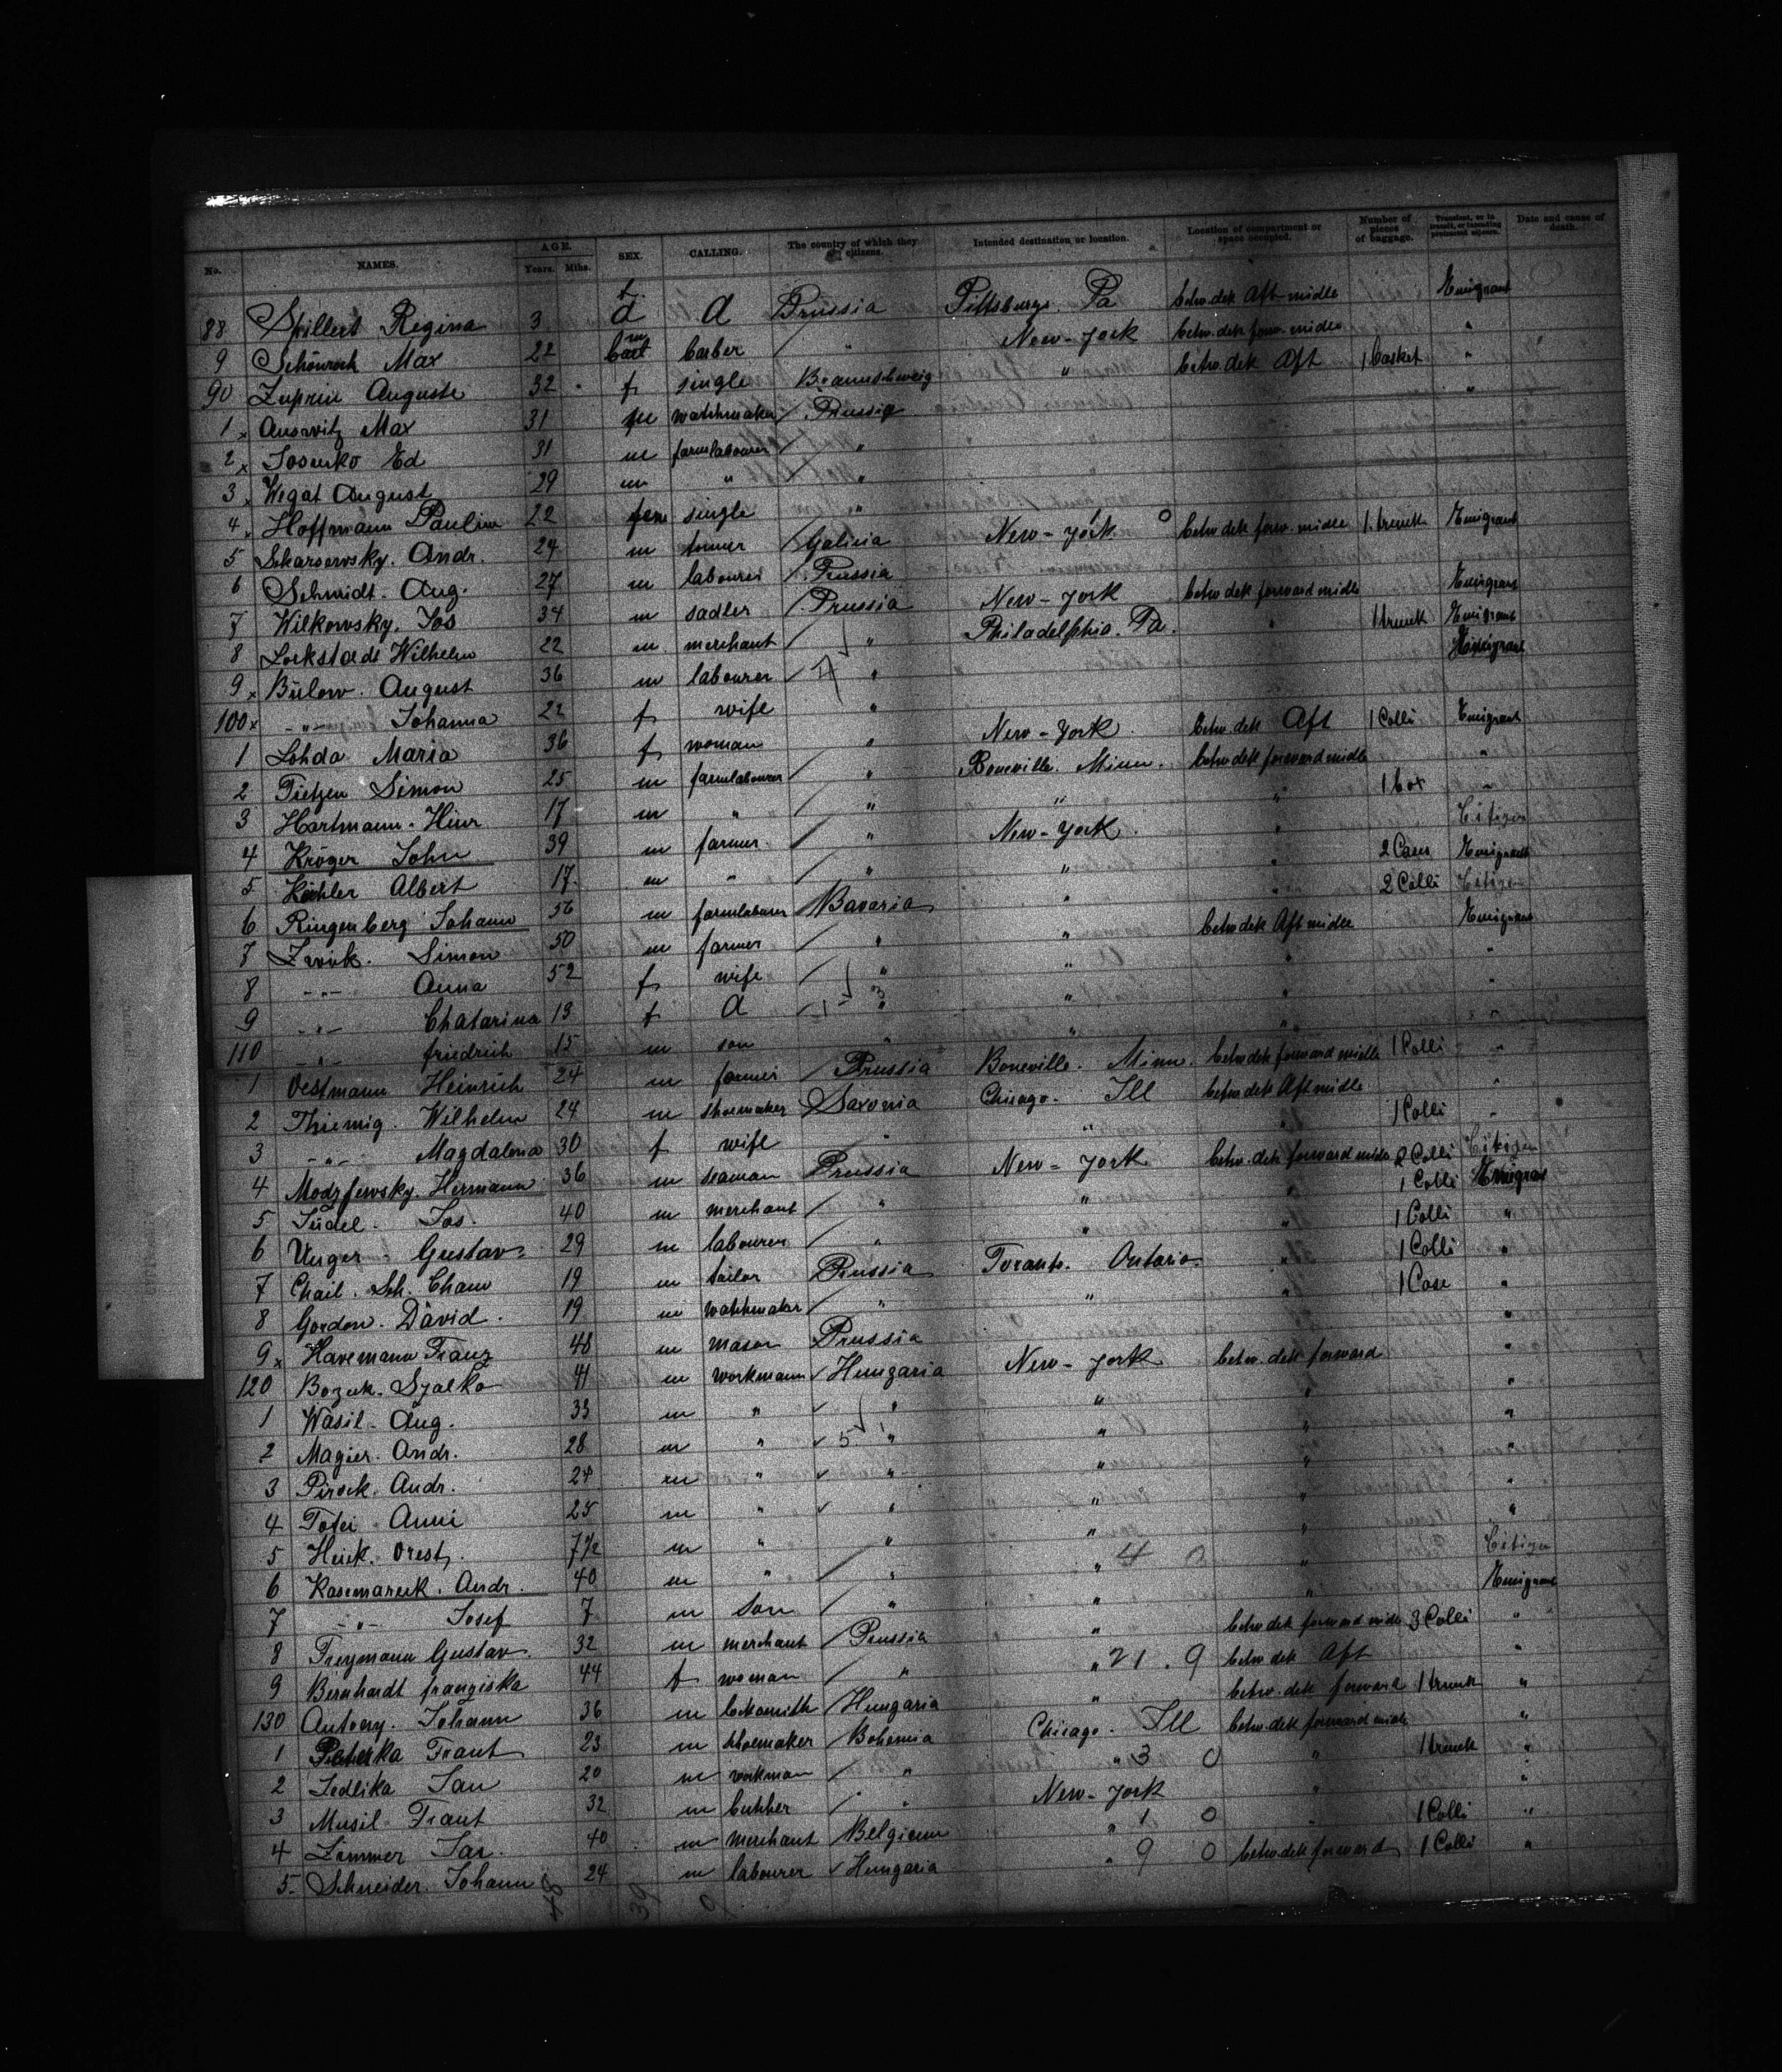 No. NAMES. AGE. Years. Mths. SEX. CALLING. The country of which they are citizens. Intended destination or location. Location of compartment or space occupied. Number of pieces of baggage. Transient, or in transit, or intending protracted sojourn. Date and cause of death.
88 Skillert Regina 3 f d d Prussia Pittsburgs. Pa betw. dek Aft midle Emigrant
9 Max 22 m barber " New-York betw. dek forw. midle "
90 Auguste 32 f single Braunschweig " betw. dek Aft 1 basket "
1 x Max 31 m watchmaker Prussia "
2 x Ed 31 m farmlabourer "
3 x Wegat August 29 m " "
4 x Hoffmann Pauline 22 fem single "
5 Andr. 24 m Galicia New-York. betw dek forw. midle 1. trunk Emigrant
6 Schmidt. Aug. 27 m labourer Prussia
7 Wilkowsky. Jos 34 m sadler Prussia New-York betw dek forward midle Emigrant
8 Lockstadt Wilhelm 22 m merchant " Philadelphia. Pa. " 1 trunk Emigrant
9 x Bülow. August 36 m labourer "
100 x -"- Johanna 22 f wife "
1 Lohda Maria 36 f woman " New-York. betw. dek Aft 1 Colli Emigrant
2 Tietzen Simon 25 m farmlabourer " Boneville. Minn. betw dek forward midle "
3 Hartmann. Hinr 17 m " " " " 1 box "
4 Kröger John 39 m farmer. " New-York. " Citizen
5 Köhler Albert 17. m " " " " 2 Cases Emigrant
6 Ringenberg Johann 56 m farmlabourer Bavaria " " 2 Colli Citizen
7 Simon 50 m farmer " " betw dek Aft midle Emigrant
8 -"- Anna 52 f wife " " " "
9 -"- Chatarina 13 f d " " " "
110 -"- friedrich 15 m son " " " "
1 Oestmann Heinrich 24 m farmer Prussia Boneville. Minn. betw dek forward midle 1 Colli "
2 Thiemig. Wilhelm 24 m shoemaker Saxonia Chicago. Ill betw dek Aft midle "
3 -"- Magdalena 30 f wife " " " 1 Colli "
4 Hermann 36 m seaman Prussia New-York betw. dek forward midle 2 Colli Citizen
5 Jüdel. Jos. 40 m merchant " " " 1 Colli Emigrant
6 Unger. Gustav. 29 m labourer " " " 1 Colli "
7 Chail. Sch. Cham 19 m tailor Prussia Toranto. Ontario. " 1 Colli "
8 Gordon. David. 19 m watchmaker " " " 1 Case "
9 x Havemann Franz 48 m mason Prussia "
120 Bozuk. Szalko 41 m workmann Hungaria New-York betw. dek forward "
1 Wasil. Aug. 33 m " " " " "
2 Magier. Andr. 28 m " 5 " " " "
3 Pirock. Andr. 24 m " " " " "
4 Totei 25 m " " " " "
5 Orest. 7½ m " " " " "
6 Andr. 40 m " " " 4 0 " Citizen
7 -"- Josef 7 m son " " " Emigrant
8 Freymann Gustav. 32 m merchant Prussia " betw dek forward midle 3 Colli "
9 Bernhardt franziska 44 f woman " " 21. 9 betw dek Aft "
130 Antony. Johann 36 m locksmith Hungaria " betw. dek forward 1 trunk "
1 Frant 23 m shoemaker Bohemia Chicago. Ill betw. dek forward midle "
2 Sedlika Jan 20 m workman " " 3 0 " 1 trunk "
3 Musil Frant 32 m butcher " New-York " "
4 Zimmer Jar. 40 m merchant Belgium " 1 0 " 1 Colli "
5. Schneider. Johann 24 m labourer Hungaria " 9 0 betw dek forward 1 Colli "
48 39 9